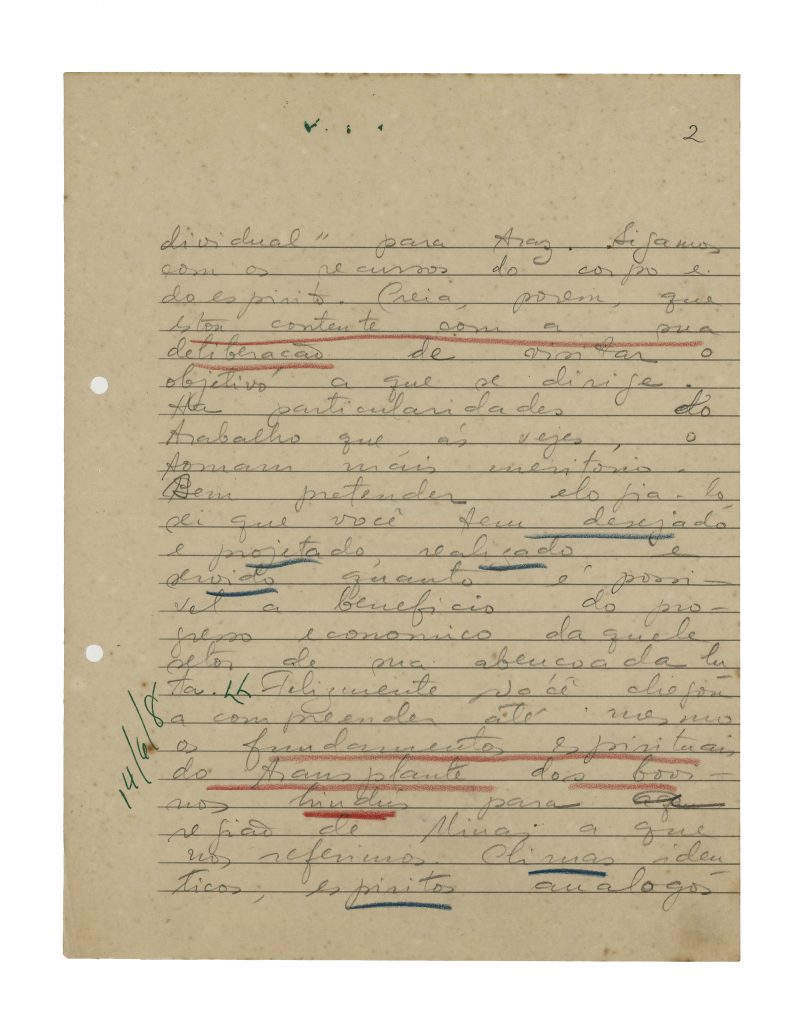 2
dividual" para Araz. Sigamos
com os recursos do corpo e
do espirito. Creia, porem, que
estou contente com a sua
deliberacão de visitar o
objetivo a que se dirige.
Ha particularidades do
trabalho que ás vezes, o
tornam máis meritorio.
Sem pretender elogia-lo
sei que você tem desejado
e projetado, realizado e
servido quanto é possi-
vel a beneficio do pro-
gresso economico daquele
setor de sua abencoada lu
ta. Felizmente você chegou
a compreender até mesmo
os fundamentos espirituais
do transplante dos bovi-
nos hindús para
região de Minas a que
nos referimos. Climas iden
ticos, espiritos analogos
14/6/8